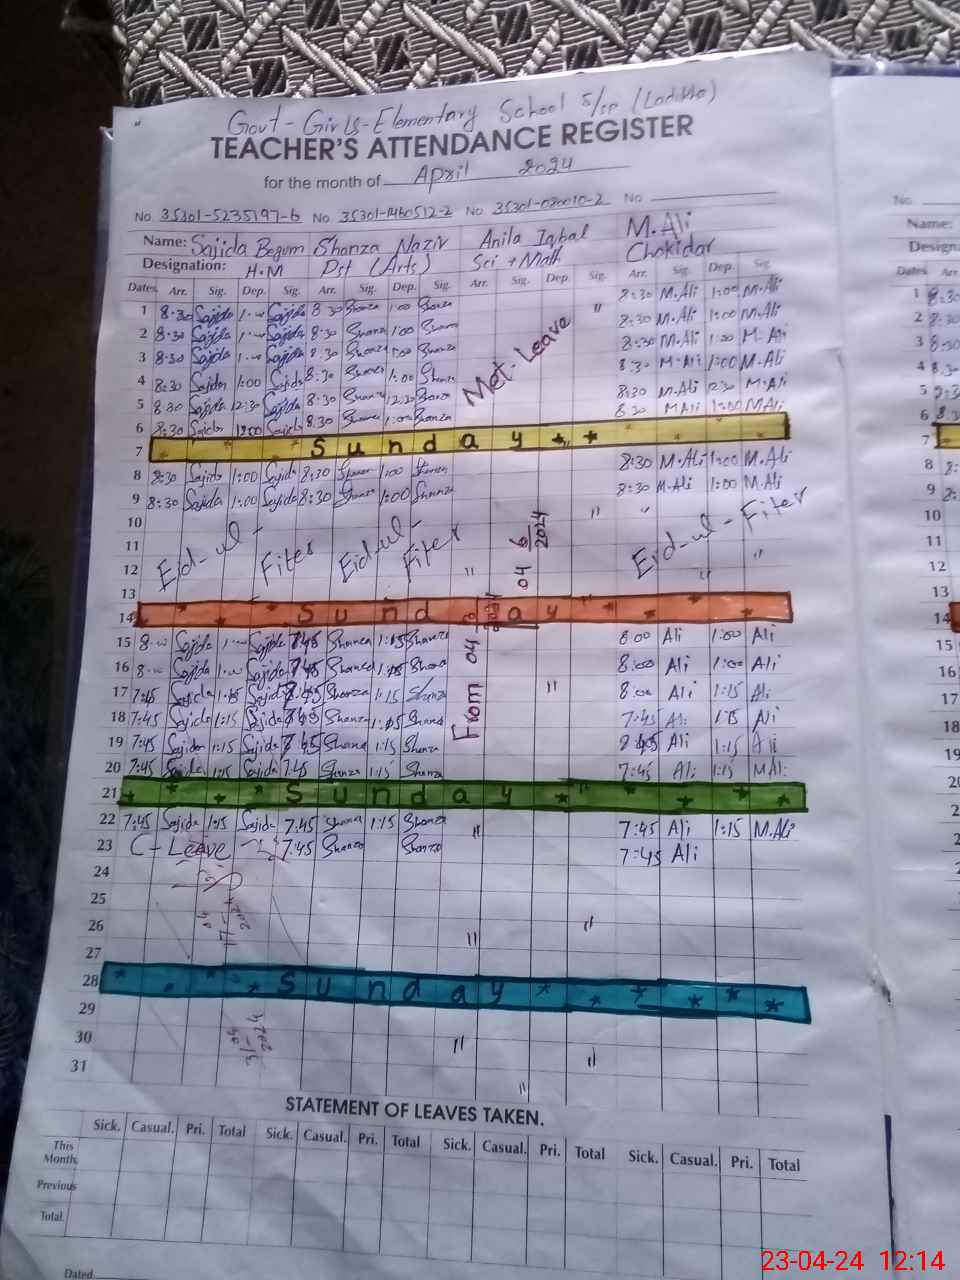 Govt-Girls-Elementary School S/SP
TEACHER'S ATTENDANCE REGISTER
for the month of April 2024
No. 35301-5235197-6 No. 35301-1460512-2 No. No.
Name: Sajida Begum Shanza Nazir Anila Iqbal M.Ali
Designation: H.M Dst (Arts) Sci + Math Chokidar
Dates Arr. Sig. Dep. Sig. Arr. Sig. Dep. Sig. Arr. Sig. Dep. Sig. Arr. Sig. Dep. Sig.
1 8:30 Sajida Sajida 8:30 Shanza 1:00 Shanza 8:30 M.Ali 1:00 M.Ali
2 8:30 Sajida Sajida 8:30 Shanza 1:00 Shanza 8:30 M.Ali 1:00 M.Ali
3 8:30 Sajida Sajida 8:30 Shanza 1:00 Shanza 8:30 M.Ali 1:00 M.Ali
4 8:30 Sajida 1:00 Sajida 8:30 Shanza 1:00 Shanza 8:30 M.Ali 1:00 M.Ali
5 8:30 Sajida 12:30 Sajida 8:30 Shanza 12:30 Shanza 8:30 M.Ali 12:30 M.Ali
6 8:30 Sajida Sajida 8:30 Shanza 1:00 Shanza 8:30 M.Ali 1:00 M.Ali
Met-Leave
7 Sunday
8 8:30 Sajida 1:00 Sajida 8:30 Shanza 1:00 Shanza 8:30 M.Ali 1:00 M.Ali
9 8:30 Sajida 1:00 Sajida 8:30 Shanza 1:00 Shanza 8:30 M.Ali 1:00 M.Ali
10
11 Eid-ul-Fiter Eid-ul-Fiter Eid-ul-Fiter
12
13
14 Sunday
From 04
04 6/2024
15 8:00 Sajida Sajida 7:45 Shanza 1:15 Shanza 8:00 Ali 1:00 Ali
16 8:00 Sajida Sajida 7:45 Shanza 1:15 Shanza 8:00 Ali 1:00 Ali
17 7:45 Sajida 1:15 Sajida Shanza 1:15 Shanza 8:00 Ali 1:15 Ali
18 7:45 Sajida 1:15 Sajida 7:45 Shanza 1:15 Shanza 7:45 Ali 1:15 Ali
19 7:45 Sajida 1:15 Sajida 7:45 Shanza 1:15 Shanza Ali 1:15 Ali
20 7:45 Sajida 1:15 Sajida 7:45 Shanza 1:15 Shanza 7:45 Ali 1:15 M.Ali
21 Sunday
22 7:45 Sajida 1:15 Sajida 7:45 Shanza 1:15 Shanza 7:45 Ali 1:15 M.Ali
23 C-Leave 7:45 Shanza Shanza 7:45 Ali
24
25
26
27
28 Sunday
29
30
31
STATEMENT OF LEAVES TAKEN.
Sick. Casual. Pri. Total Sick. Casual. Pri. Total Sick. Casual. Pri. Total Sick. Casual. Pri. Total
This Month.
Previous
Total.
Dated
23-04-24 12:14